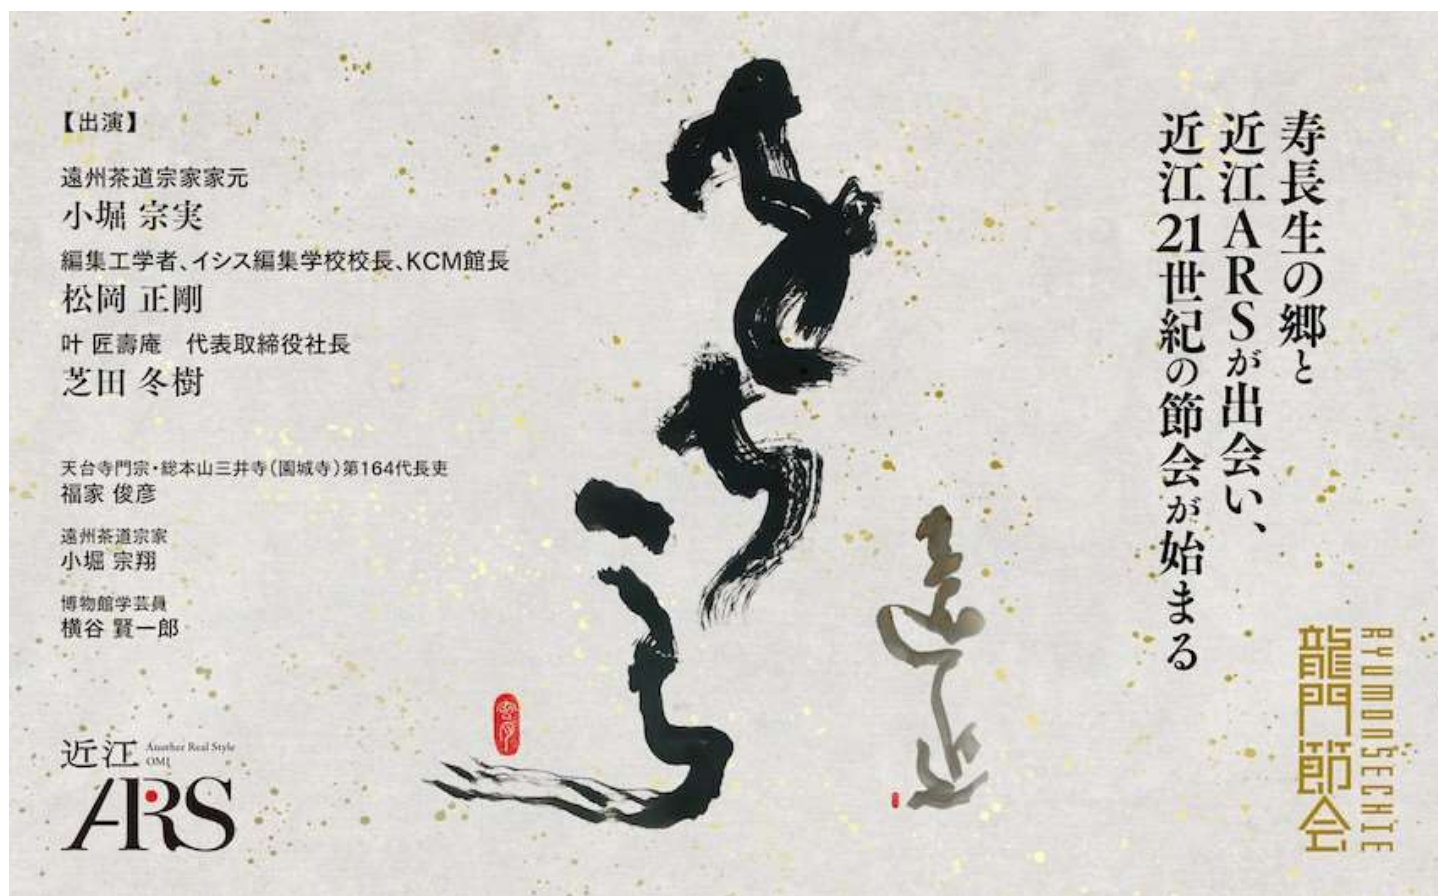 寿長生の郷と
近江ARSが出会い、
近江21世紀の節会が始まる
龍門節会
RYUMONSECHIE
【出演】
遠州茶道宗家家元
小堀 宗実
編集工学者、イシス編集学校校長、KCM館長
松岡 正剛
叶 匠壽庵　代表取締役社長
芝田 冬樹
天台寺門宗・総本山三井寺（園城寺）第164代長吏
福家 俊彦
遠州茶道宗家
小堀 宗翔
博物館学芸員
横谷 賢一郎
近江
Another Real Style
OMI
ARS